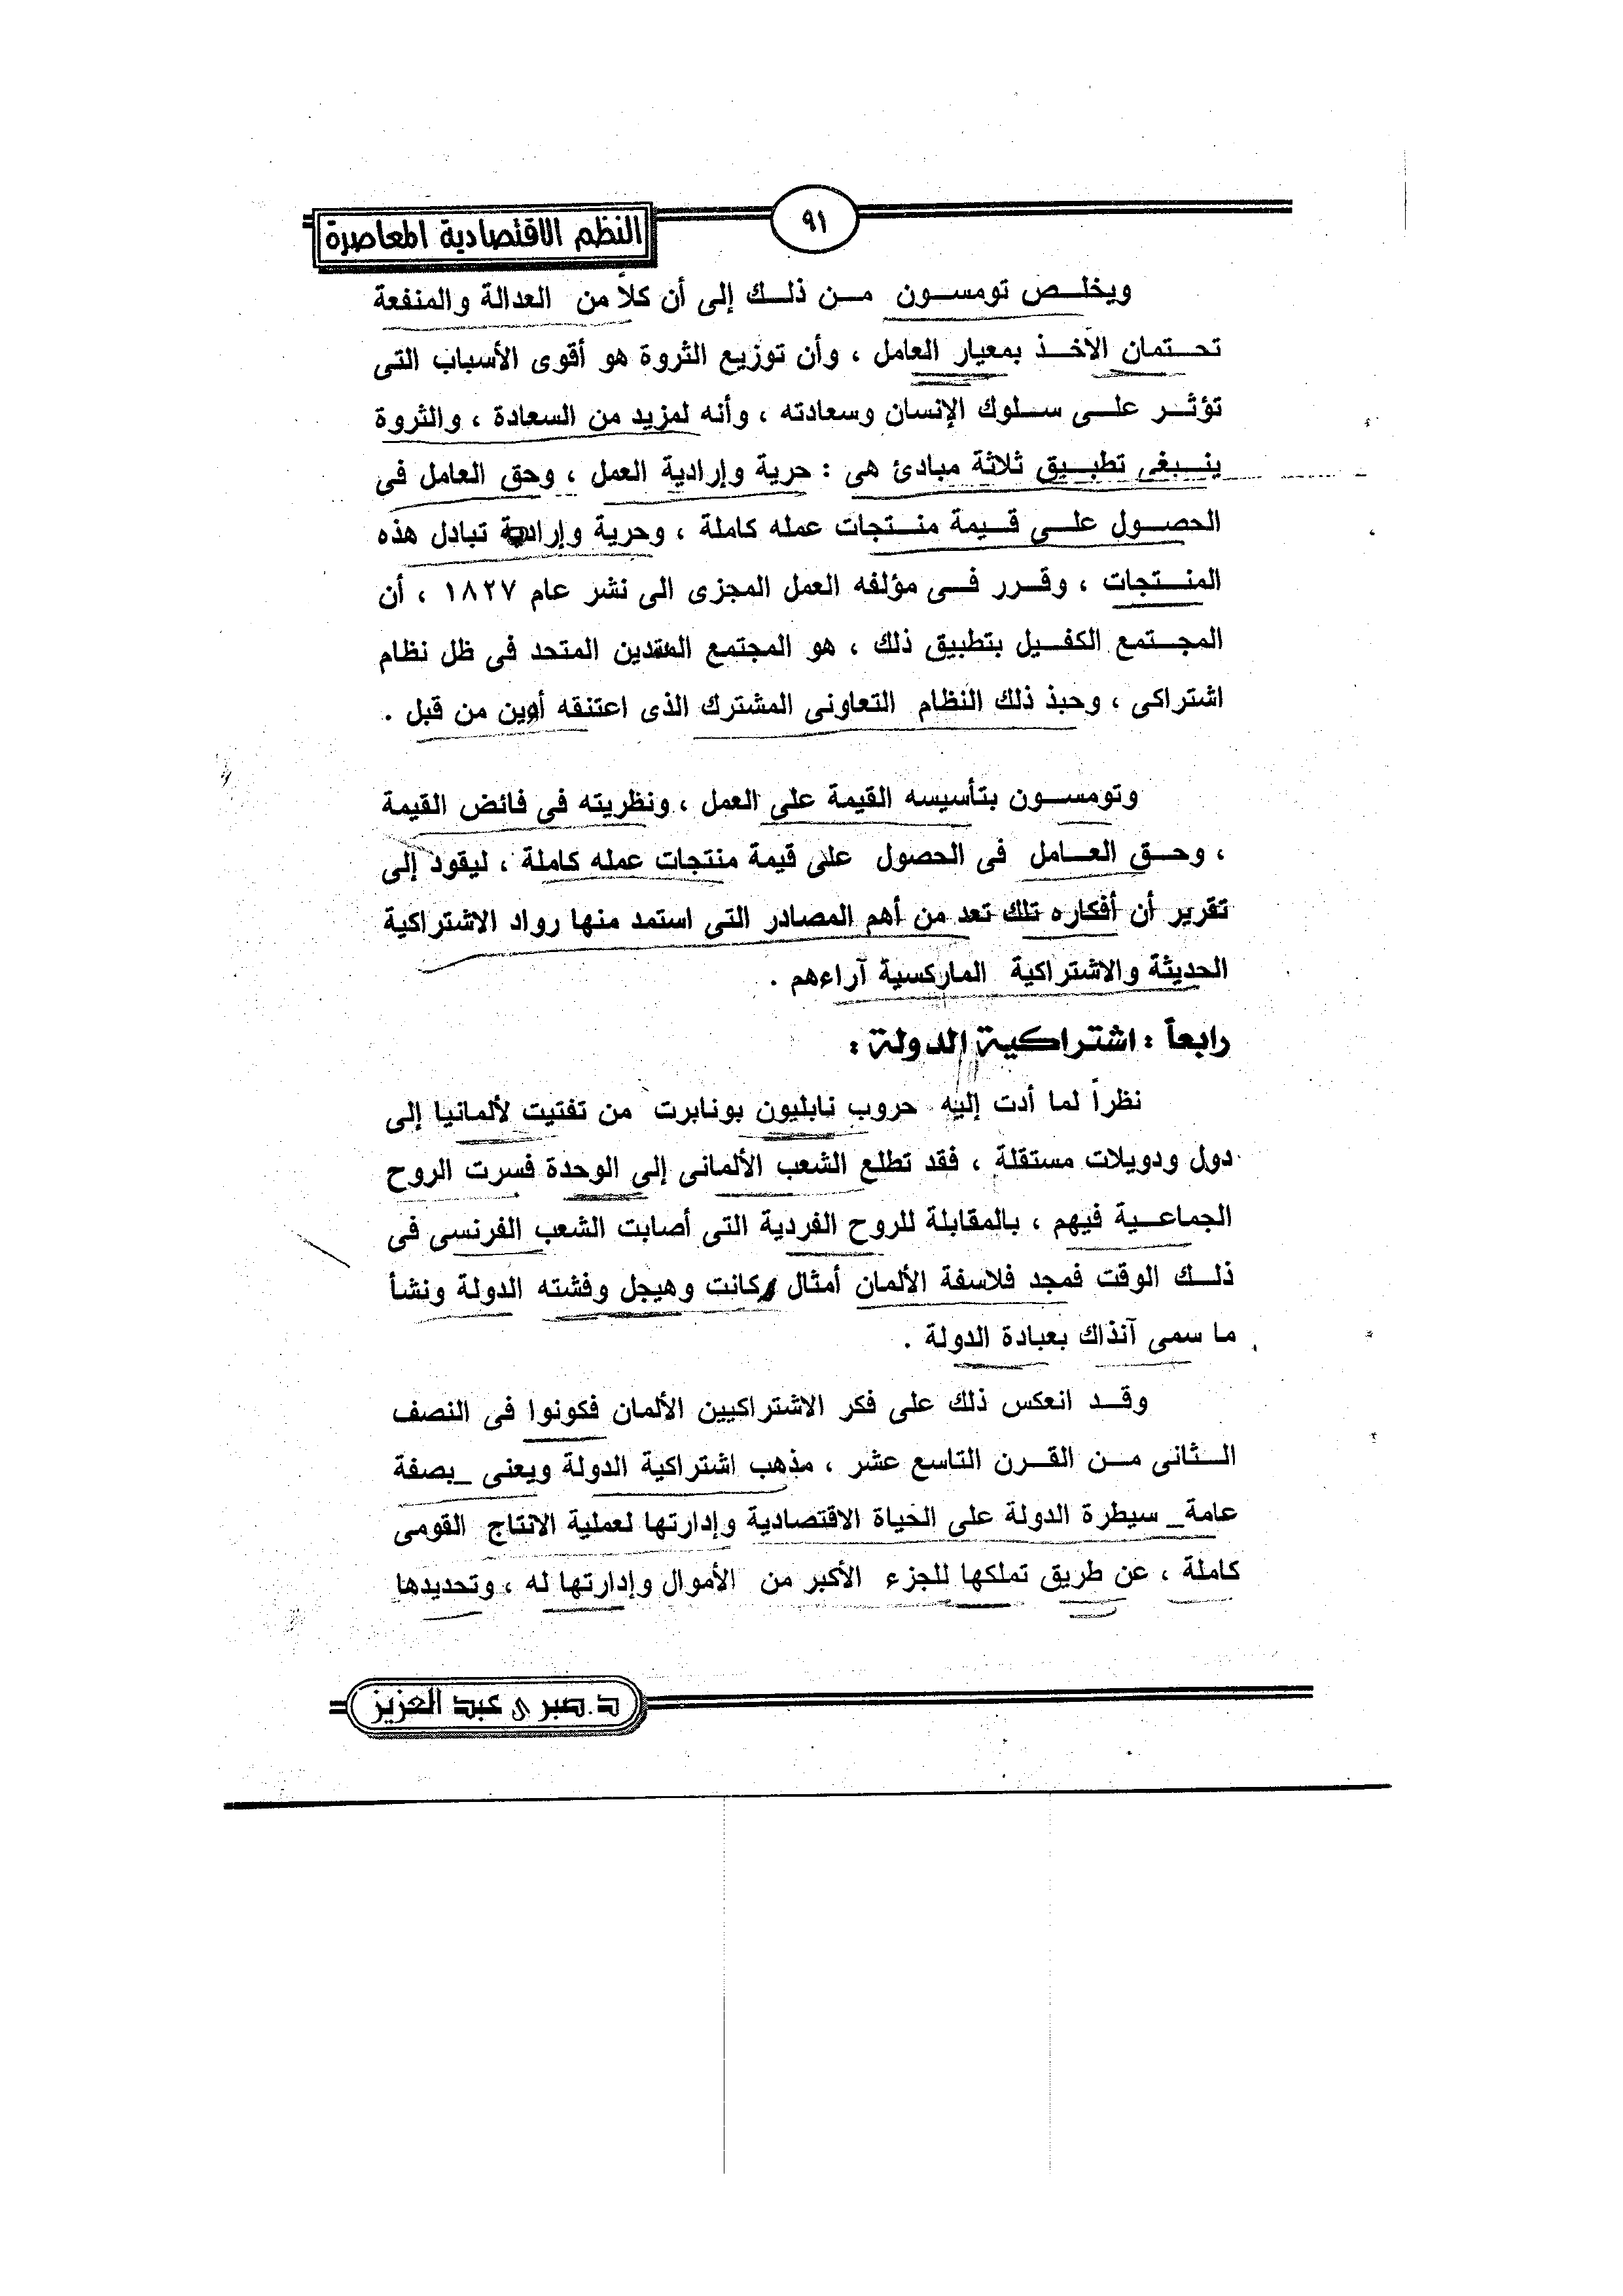 ٩١
النظم الاقتصادية المعاصرة
ويخلص تومسون من ذلك إلى أن كلاً من العدالة والمنفعة
تحتمان الأخذ بمعيار العامل ، وأن توزيع الثروة هو أقوى الأسباب التى
تؤثر على سلوك الإنسان وسعادته ، وأنه لمزيد من السعادة ، والثروة
ينبغى تطبيق ثلاثة مبادئ هى : حرية وإرادية العمل ، وحق العامل فى
الحصول على قيمة منتجات عمله كاملة ، وحرية وإرادية تبادل هذه
المنتجات ، وقرر فى مؤلفه العمل المجزى الى نشر عام ١٨٢٧ ، أن
المجتمع الكفيل بتطبيق ذلك ، هو المجتمع المتحد فى ظل نظام
اشتراكى ، وحبذ ذلك النظام التعاونى المشترك الذى اعتنقه أوين من قبل .
وتومسون بتأسيسه القيمة على العمل ، ونظريته فى فائض القيمة
، وحق العامل فى الحصول على قيمة منتجات عمله كاملة ، ليقود إلى
تقرير أن أفكاره تلك تعد من أهم المصادر التى استمد منها رواد الاشتراكية
الحديثة والاشتراكية الماركسية آراءهم .
رابعاً : اشتراكية الدولة :
نظراً لما أدت إليه حروب نابليون بونابرت من تفتيت لألمانيا إلى
دول ودويلات مستقلة ، فقد تطلع الشعب الألمانى إلى الوحدة فسرت الروح
الجماعية فيهم ، بالمقابلة للروح الفردية التى أصابت الشعب الفرنسى فى
ذلك الوقت فمجد فلاسفة الألمان أمثال كانت وهيجل وفشته الدولة ونشأ
ما سمى آنذاك بعبادة الدولة .
وقد انعكس ذلك على فكر الاشتراكيين الألمان فكونوا فى النصف
الثانى من القرن التاسع عشر ، مذهب اشتراكية الدولة ويعنى _بصفة
عامة_ سيطرة الدولة على الحياة الاقتصادية وإدارتها لعملية الانتاج القومى
كاملة ، عن طريق تملكها للجزء الأكبر من الأموال وإدارتها له ، وتحديدها
د. صبرى عبد العزيز